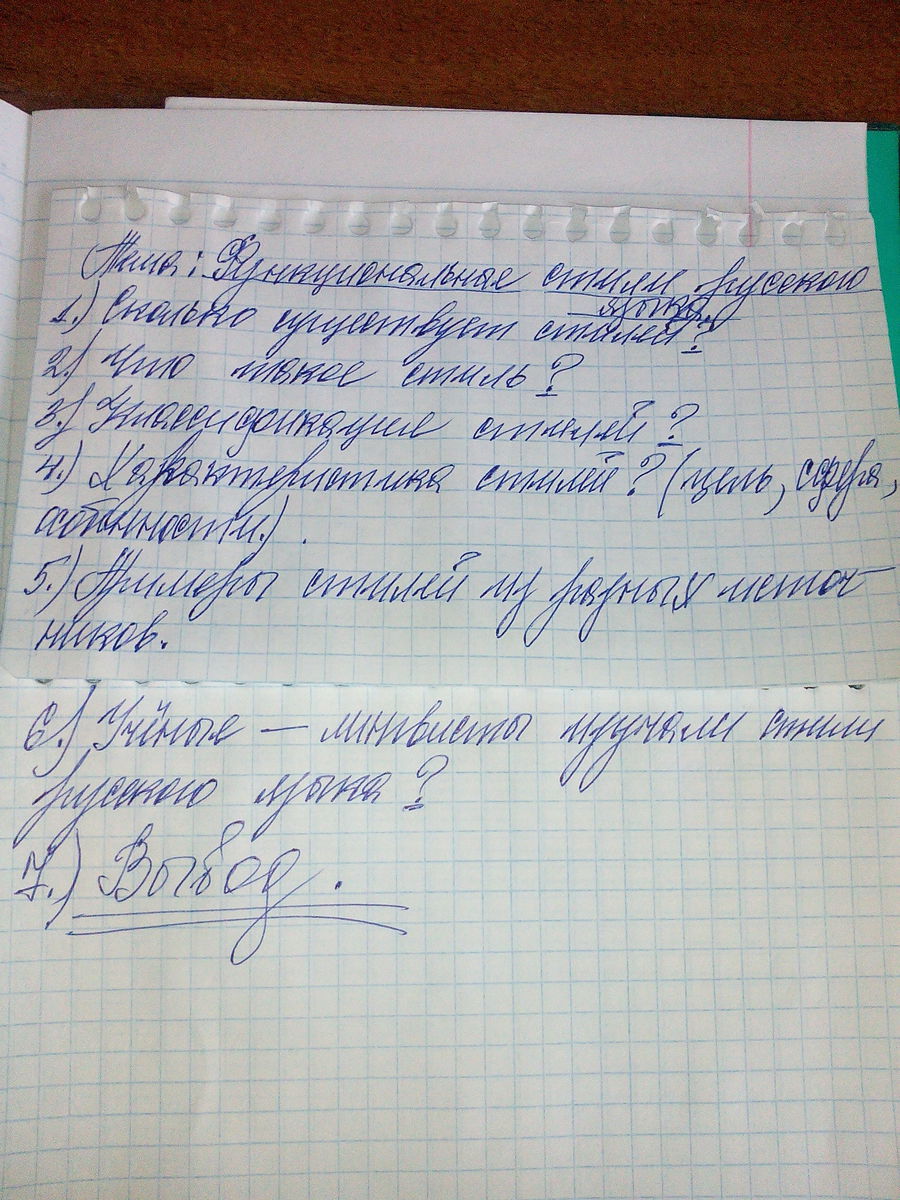 Тема: Функциональные стили русского
языка.
1.) Сколько существует стилей?
2.) Что такое стиль?
3.) Классификация стилей?
4.) Характеристика стилей? (цель, сфера,
особенности.).
5.) Примеры стилей из разных источ-
ников.
6.) Учёные – лингвисты изучали стили
русского языка?
7.) Вывод.